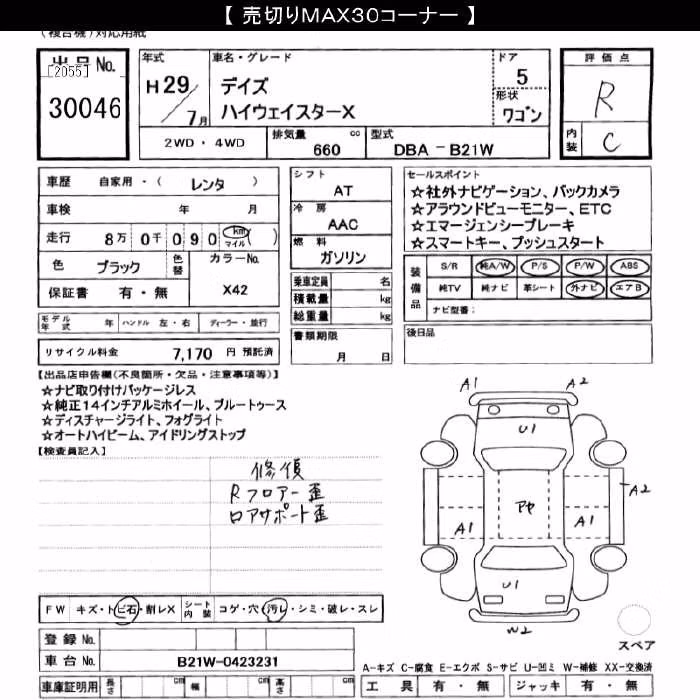 【 売切りMAX30コーナー 】
(複合機)対応用紙
出品No.
[2055]
30046
年式
H29/7月
車名・グレード
デイズ
ハイウェイスターX
ドア
5
形状
ワゴン
評価点
R
内装
C
2WD ・ 4WD
排気量 cc
660
型式
DBA - B21W
車歴 自家用・( レンタ )
車検 年 月
走行 8万 0千 0 9 0 km マイル ( )
色 ブラック 色替 カラーNo.
保証書 有・無 X42
シフト
AT
冷房
AAC
燃料
ガソリン
乗車定員 名
積載量 kg
総重量 kg
セールスポイント
☆社外ナビゲーション、バックカメラ
☆アラウンドビューモニター、ETC
☆エマージェンシーブレーキ
☆スマートキー、プッシュスタート
装備品
S/R 純A/W P/S P/W ABS
純TV 純ナビ 革シート 外ナビ エアB
ナビ型番:
モデル年式 年 ハンドル 左・右 ディーラー・並行
書類期限
月 日
後日品
リサイクル料金 7,170 円 預託済
【出品店申告欄(不良箇所・欠品・注意事項等)】
☆ナビ取り付けパッケージレス
☆純正14インチアルミホイール、ブルートゥース
☆ディスチャージライト、フォグライト
☆オートハイビーム、アイドリングストップ
【検査員記入】
修復
Rフロアー歪
ロアサポート歪
A1 A2
U1
A2
A1 A1
U1
W2
スペア
FW キズ・トビ石・削レX シート内装 コゲ・穴・汚レ・シミ・破レ・スレ
登録No.
車台No. B21W-0423231
車庫証明用 長さ cm 幅 cm 高さ cm
A-キズ C-腐食 E-エクボ S-サビ U-凹ミ W-補修 XX-交換済
工具 有・無 ジャッキ 有・無